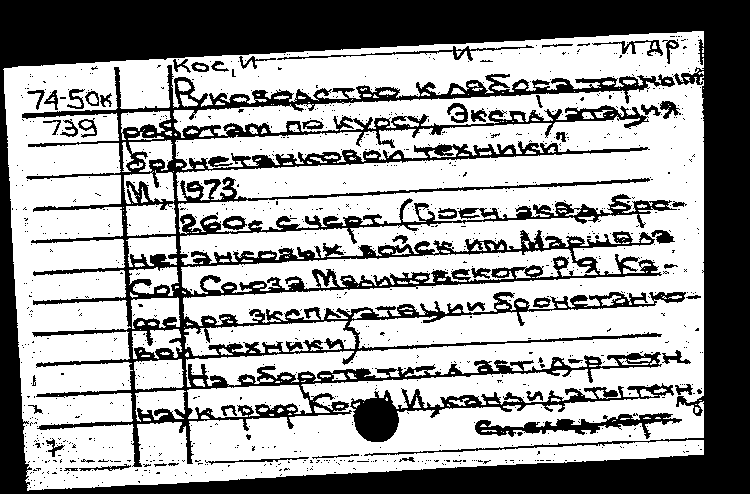 Кос, И И и др.
74-50к Руководство к лабораторным
739 работам по курсу „Эксплуатация
бронетанковой техники".
М., 1973.
260 с. с черт. (Воен. акад. бро-
нетанковых войск им. Маршала
Сов. Союза Малиновского Р.Я. Ка-
федра эксплуатации бронетанко-
вой техники)
На обороте тит. л. авт.: д-р техн.
наук проф. Кос И.И., кандидаты техн.
См. след. карт.